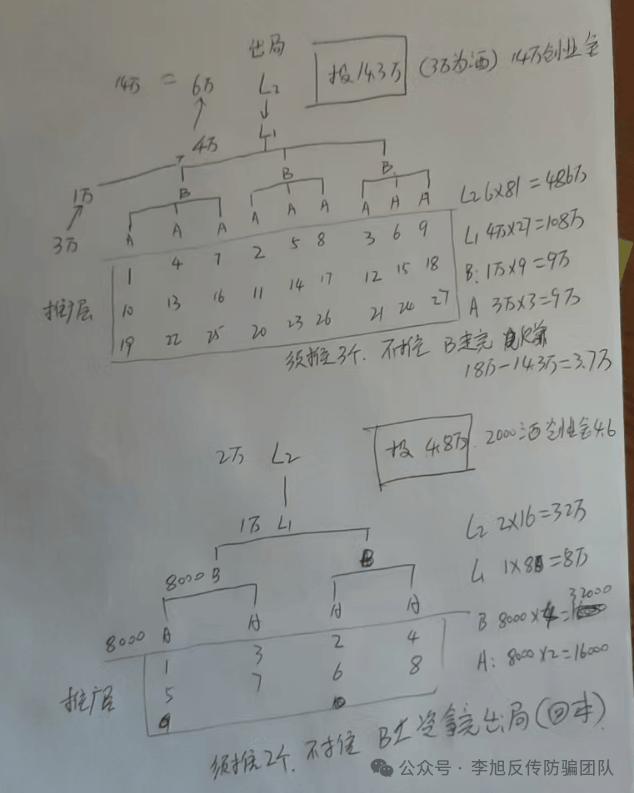 出局
14万 = 6万 L2 投14.3万 (3万为酒) 14万创业金
4万 L1
1万 B B B
3万 A A A A A A A A A
L2 6×81=486万
L1 4万×27=108万
B: 1万×9=9万
A 3万×3=9万
推广层
1 4 7 2 5 8 3 6 9
10 13 16 11 14 17 12 15 18
19 22 25 20 23 26 21 24 27
须推3个. 不推 B走完
18万-14.3万=3.7万
2万 L2 投 4.8万 2000酒 创业金4.6
1万 L1
8000 B B
8000 A A A A
L2 2×16=32万
L1 1×8=8万
B 8000×4=32000
A: 8000×2=16000
推广层
1 3 2 4
5 7 6 8
9 10
须推2个. 不推 B 拿完出局(回本).
公众号·李旭反传防骗团队